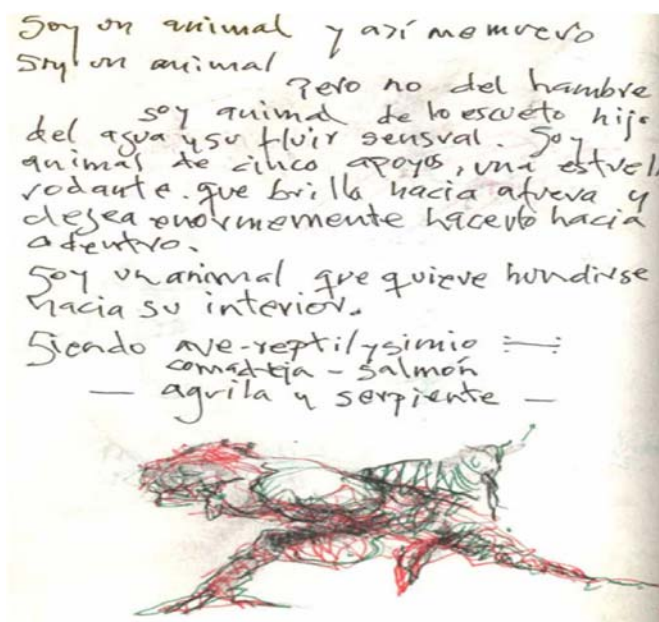 Soy un animal y así me muevo
Soy un animal
Pero no del hambre
soy animal de lo escueto hijo
del agua y su fluir sensual. Soy
animal de cinco apoyos, una estrell
rodante que brilla hacia afuera y
desea enormemente hacerlo hacia
adentro.
Soy un animal que quiere hundirse
hacia su interior.
Siendo ave-reptil y simio
comadreja - salmón
— aguila y serpiente —